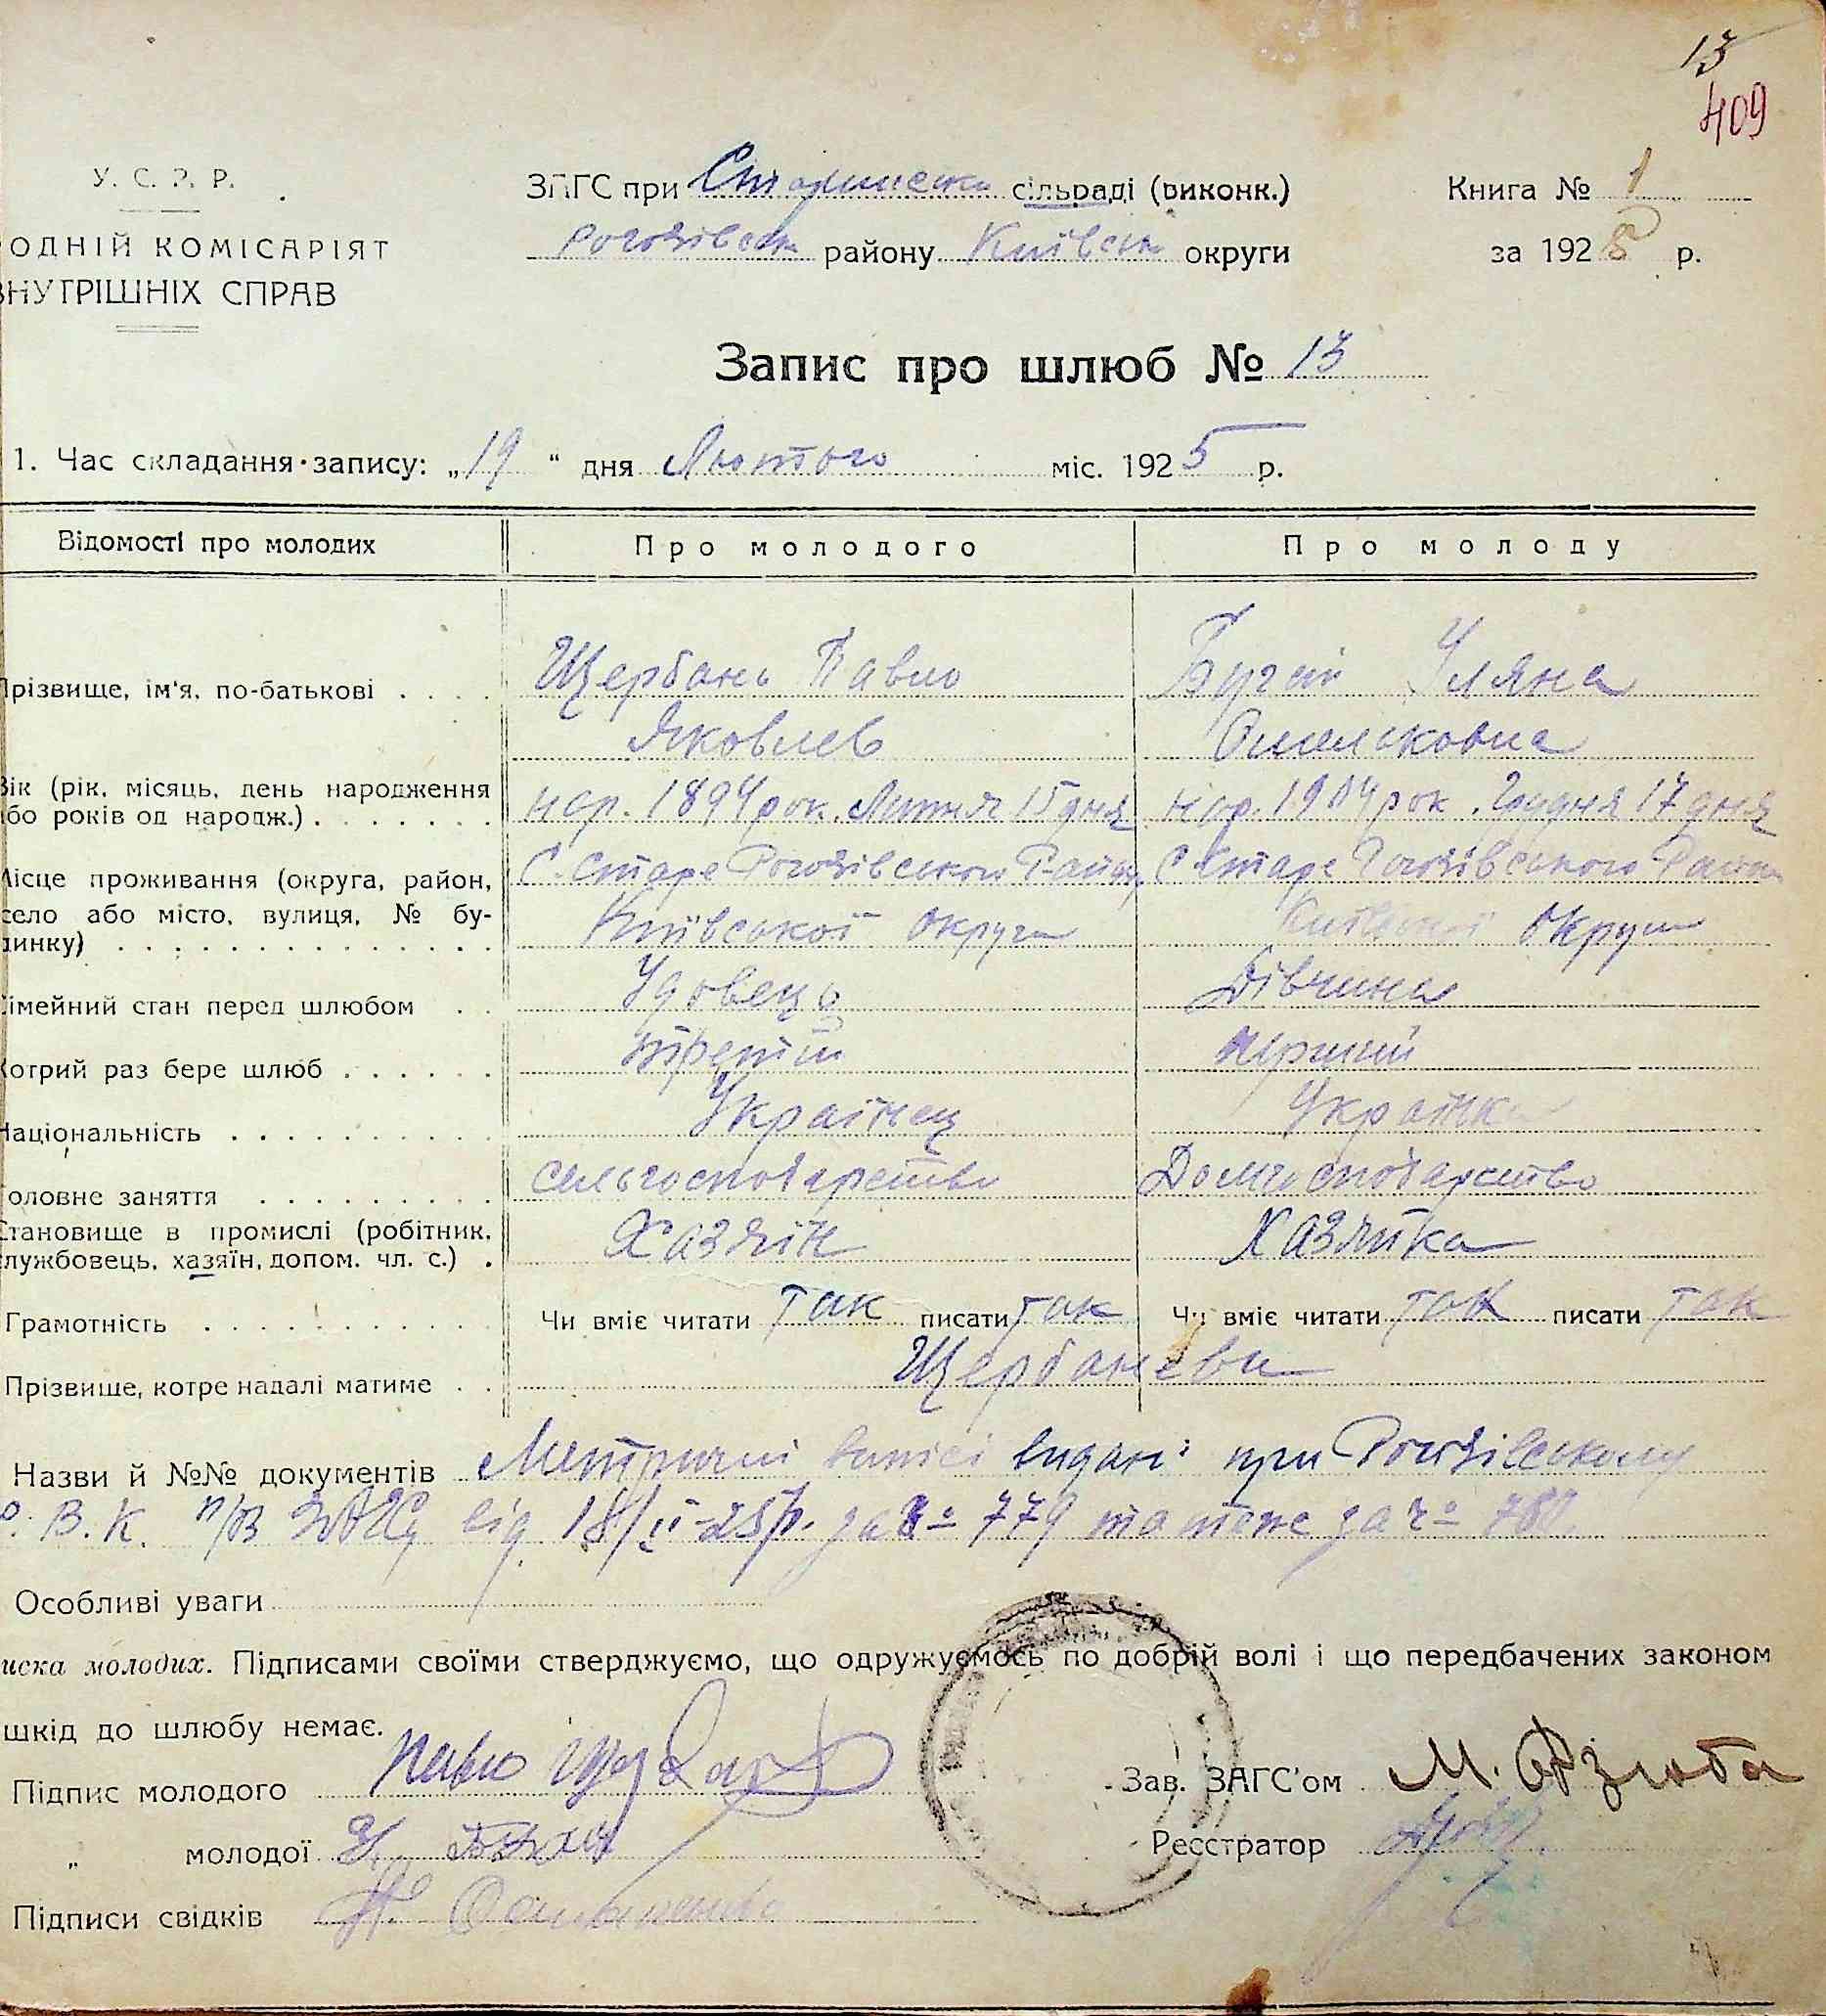 13
409
У. С. Р. Р.
ОДНІЙ КОМІСАРІЯТ
ВНУТРІШНІХ СПРАВ
ЗАГС при сільраді (виконк.)
Рогозівськ району Київськ округи
Книга № 1
за 1925 р.
Запис про шлюб № 13
1. Час складання запису: „19" дня Лютого міс. 1925 р.
Відомості про молодих Про молодого Про молоду
Прізвище, ім'я, по-батькові . . . . Щербань Павло Бугай Уляна
Яковлев Омельковна
Вік (рік, місяць, день народження нар. 1894 рок. 15 дня нар. 1904 рок. Грудня 17 дня
або років од народж.) . . . . . . .
Місце проживання (округа, район, С. Старе Рогозівського Район С. Старе Рогозівського Район
село або місто, вулиця, № бу- Київської округи Київської округи
динку) . . . . . . . . . . . . . .
Сімейний стан перед шлюбом . . Удовець Дівчина
Котрий раз бере шлюб . . . . . . третій перший
Національність . . . . . . . . . . Українец Українка
Головне заняття . . . . . . . . . сельгосподарство Домгосподарство
Становище в промислі (робітник, Хазяїн Хазяйка
службовець, хазяїн, допом. чл. с.) .
Грамотність . . . . . . . . . . . Чи вміє читати так писати так Чи вміє читати так писати так
Прізвище, котре надалі матиме . . Щербаневи
Назви й №№ документів Метричні випісі видані при Рогозівському
Р. В. К. п/в ЗАГСу від 18/II-25р. за № 779 та теж за ч= 780
Особливі уваги
иска молодих. Підписами своїми стверджуємо, що одружуємось по добрій волі і що передбачених законом
шкід до шлюбу немає.
Підпис молодого Павло Щербань
„ молодої У. Бугай
Підписи свідків
Зав. ЗАГС'ом М. Дзюба
Реєстратор